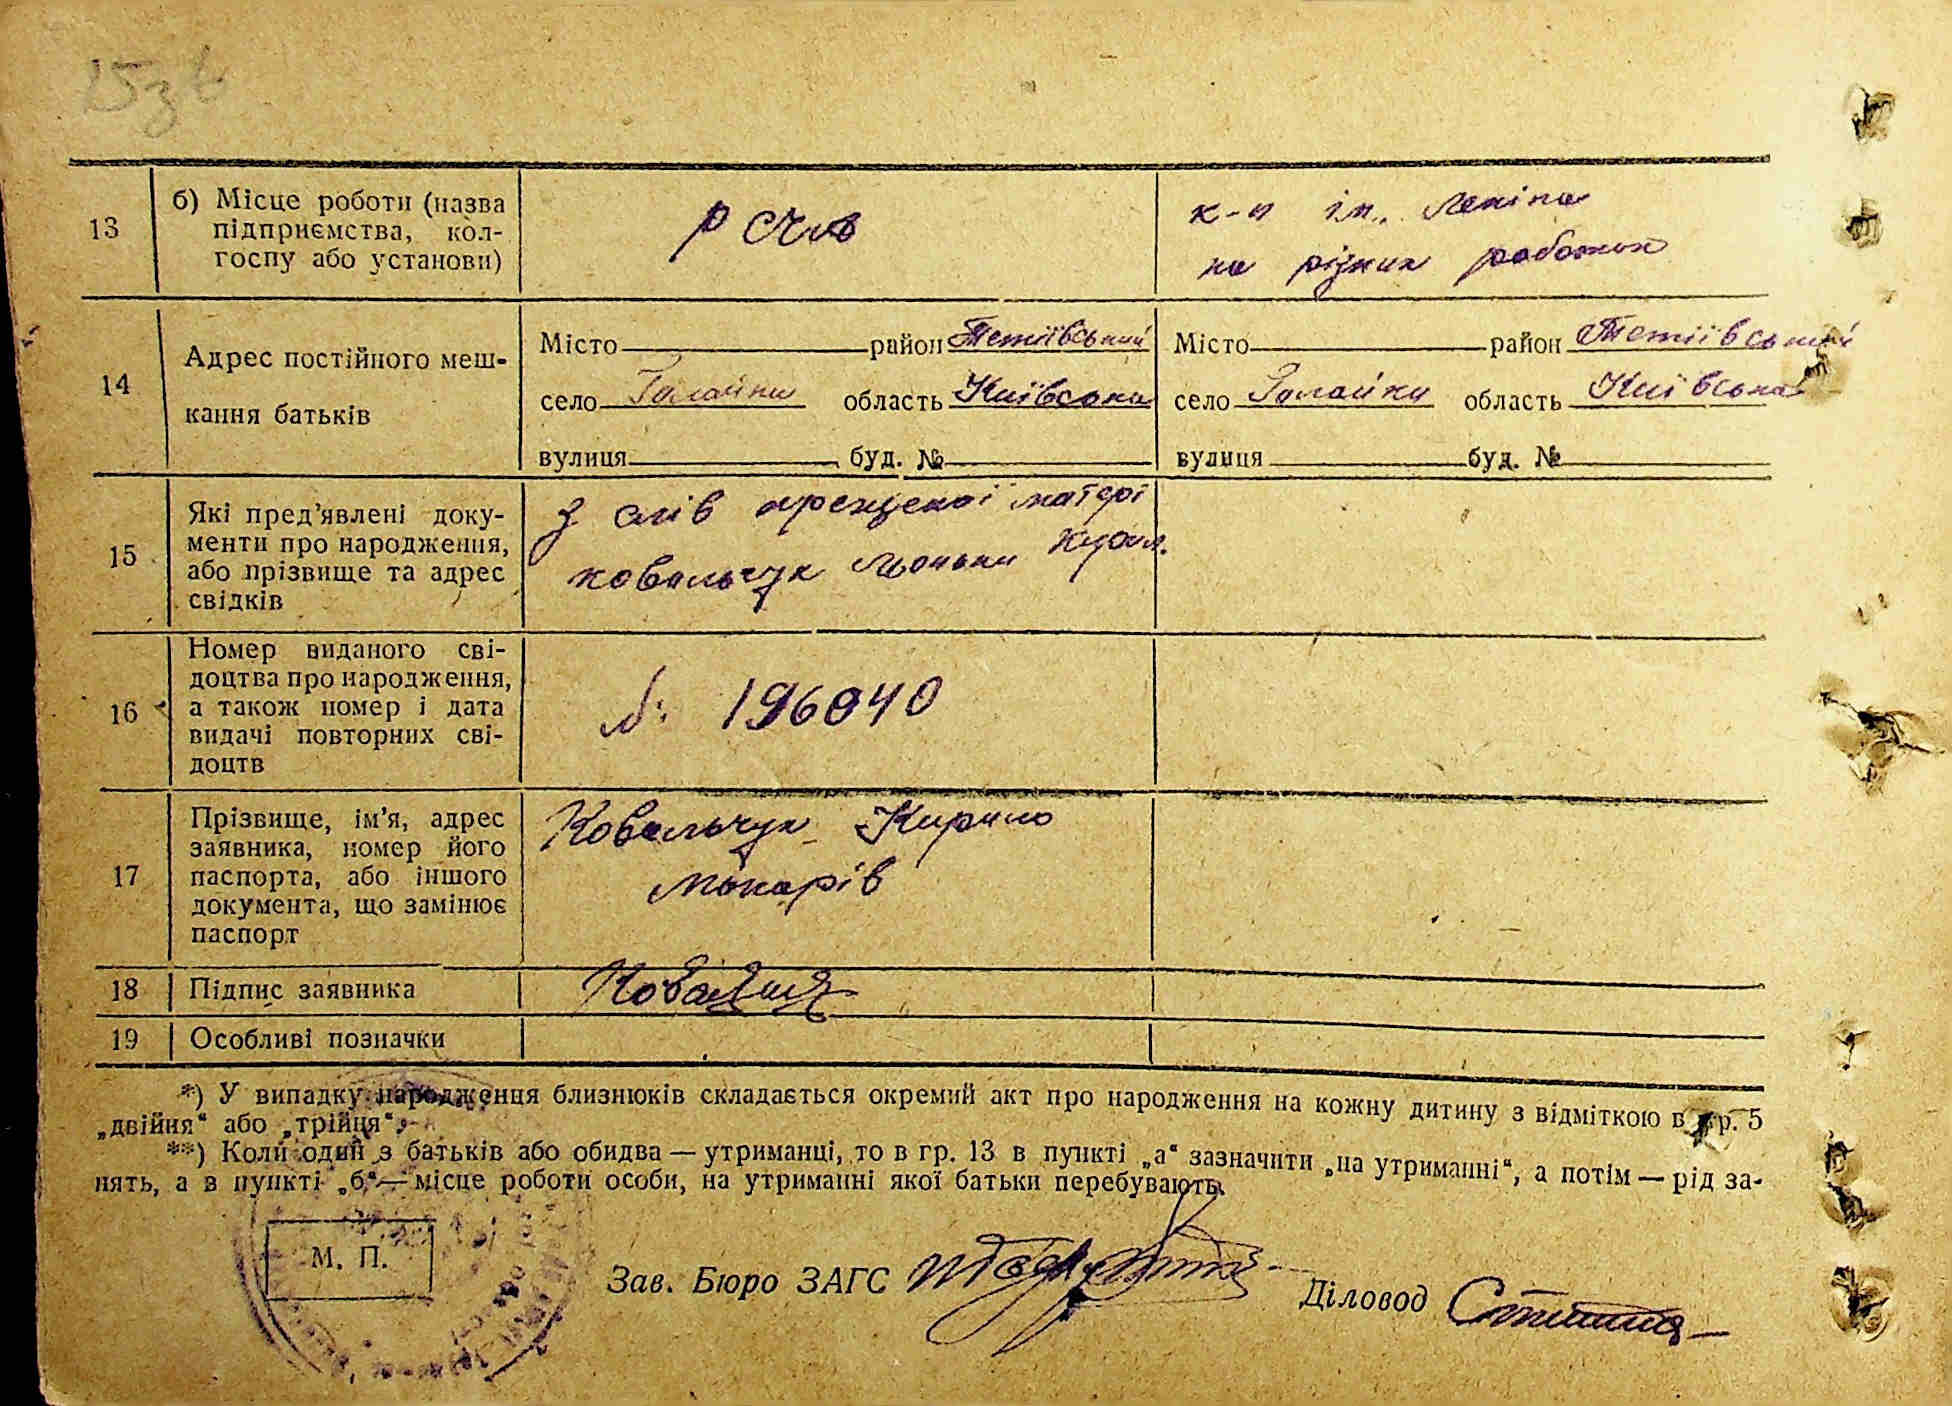 13
б) Місце роботи (назва
підприємства, кол-
госпу або установи)
к-п ім. Леніна
на різних роботах
14
Адрес постійного меш-
кання батьків
Місто район Тетіївський
село Галайки область Київська
вулиця буд. №
Місто район Тетіївський
село Галайки область Київська
вулиця буд. №
15
Які пред’явлені доку-
менти про народження,
або прізвище та адрес
свідків
з слів матері
Ковальчук
16
Номер виданого сві-
доцтва про народження,
а також номер і дата
видачі повторних сві-
доцтв
№ 196040
17
Прізвище, ім’я, адрес
заявника, номер його
паспорта, або іншого
документа, що замінює
паспорт
Ковальчук Кирило
Макарів
18
Підпис заявника
19
Особливі позначки
*) У випадку народження близнюків складається окремий акт про народження на кожну дитину з відміткою в гр. 5
„двійня“ або „трійця“.
**) Коли один з батьків або обидва — утриманці, то в гр. 13 в пункті „а“ зазначити „на утриманні“, а потім — рід за-
нять, а в пункті „б“ — місце роботи особи, на утриманні якої батьки перебувають.
М. П.
Зав. Бюро ЗАГС
Діловод